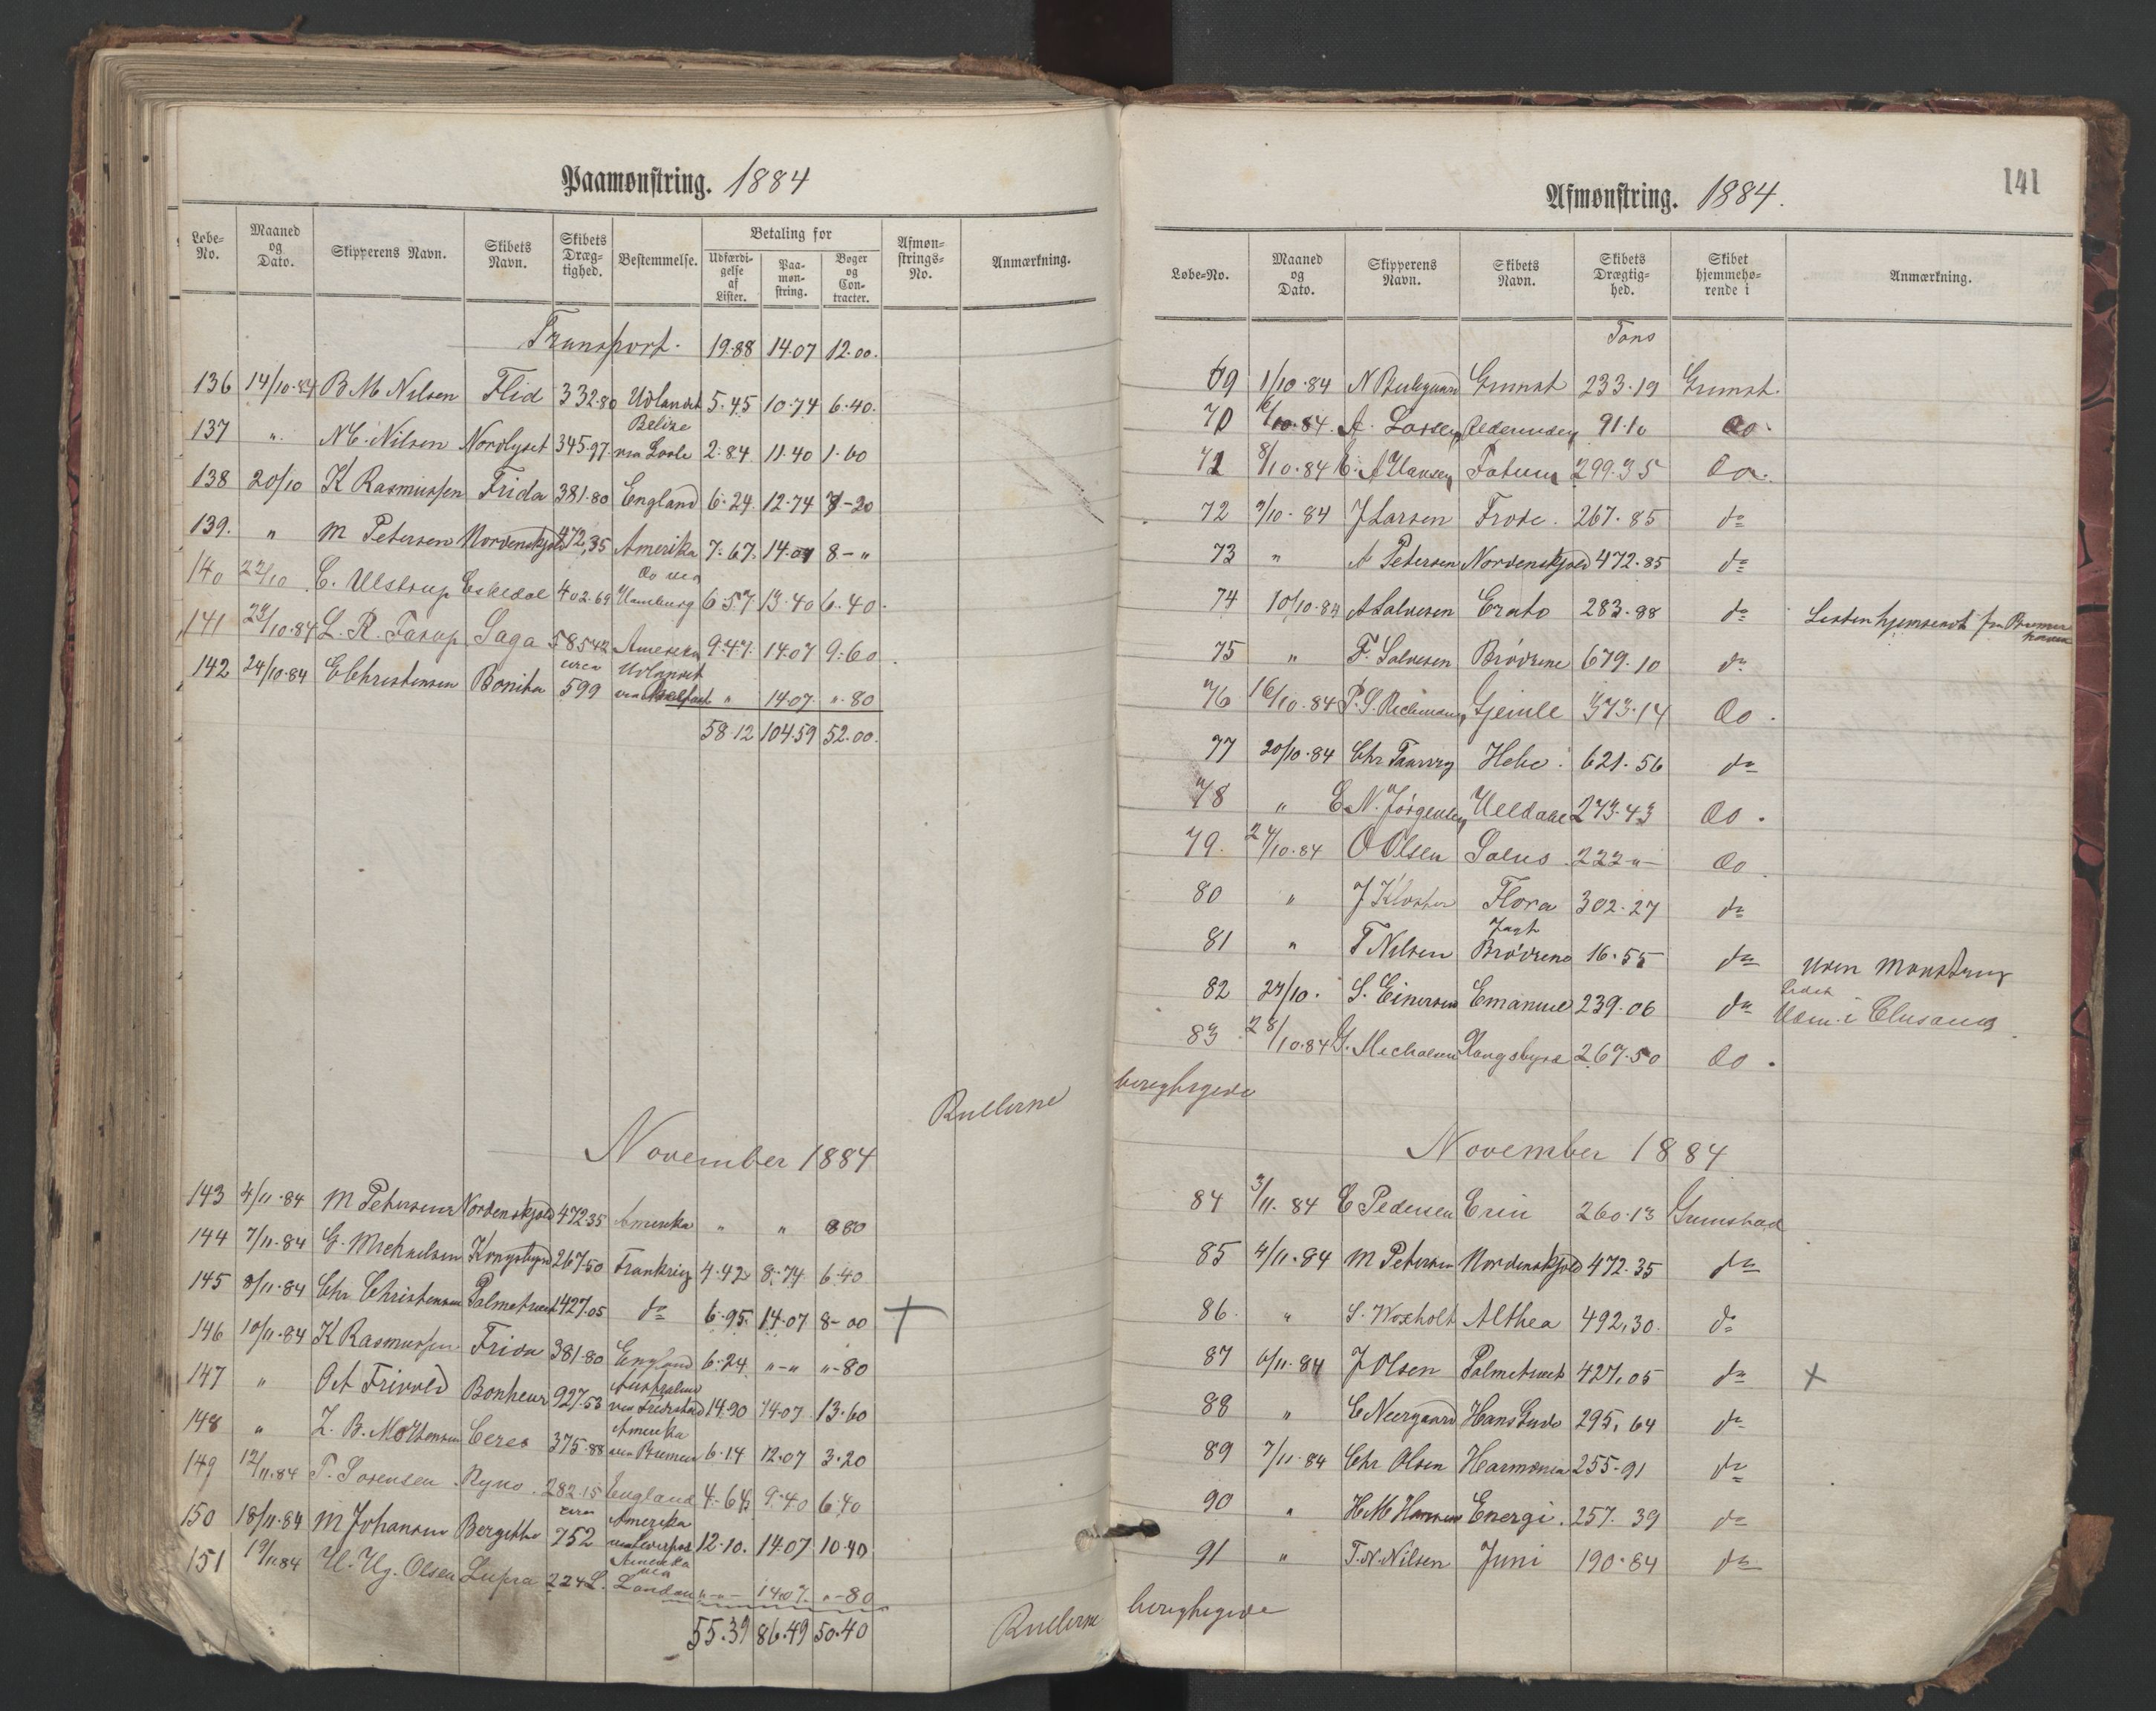 Paamønstring. 1884
Løbe-No. | Maaned og Dato. | Skipperens Navn. | Skibets Navn. | Skibets Dræg-tighed. | Bestemmelse. | Betaling for | Udfærdi-gelse af Lister. | Paa-møn-string. | Bøger og Con-tracter. | Afmøn-strings-No. | Anmærkning.
Transport. 19.88 14.07 12.00.
136 14/10.84 B M Nilsen Flid 332.80 Udlandet 5.45 10.74 6.40.
137 " N C. Nilsen Nordlyset 345.97 Belize via Goole 2.84 11.40 1.60
138 20/10 K Rasmussen Frida 381.80 England 6.24 12.74 7-20
139. " M Petersen Nordenskjold 472,35 Amerika 7.67 14.07 8-"
140 22/10 C. Ulstrup Eskedal 402.69 Do via Hamburg 6.57 13.40 6.40.
141 23/10.84 L. R. Tarup Saga 585.42 Amerika 9.47 14.07 9.60
142 24/10.84 E Christensen Bonita circa 599 Udlandet via Belfast " 14.07 ".80
58.12 104.59 52.00.
Rullerne
November 1884
143 4/11.84 M Petersen Nordenskjold 472.35 Amerika " " 880
144 7/11.84 G. Michaelsen Kongsbyrd 267.50 Frankrig 4.42 8.74 6.40
145 8/11.84 Chr Christensen Palmetræet 1427.05 do 6.95. 14.07 8-00 +
146 10/11.84 K Rasmussen Frida 381.80 England 6.24 "-" "-80
147 " Oct Frivold Bonheur 927.53 Australien via Fredrikstad 14.90 14.07 13.60
148 " Z. B. Mortensen Ceres 375.88 Amerika via Bremen 6.14 12.07 3.20
149 12/11.84 T. Sørensen Ryno 282.15 England 4.64 9.40 6.40
150 18/11.84 M Johansen Bergitte circa 752 Amerika via Liverpool 12.10. 14.07 10.40
151 19/11.84 Olsen 224 Amerika via London "-" 14.07. "-80
55.39 86.49 50.40
Rullerne
141
Afmønstring. 1884.
Løbe-No. | Maaned og Dato. | Skipperens Navn. | Skibets Navn. | Skibets Drægtig-hed. | Skibet hjemmehø-rende i | Anmærkning.
Tons
69 1/10.84 N Grimst 233.19 Grimst.
70 6/10.84. A. Larsen 91.10 Do.
71 8/10.84 C. A Hansen Fatum 299.35 Do.
72 9/10.84 J Larsen Frode. 267.85 do
73 " A Petersen Nordenskjold 472.85 do
74 10/10.84 A Salvesen Erato 283.88 do Listen hjemsendt fra Bremerhaven
75 " F. Salvesen Brødrene 679.10 do
76 16/10.84 P. S. Gjemle 373.14 Do.
77 20/10.84 Chr Hebe. 621.56 do
78 " E. N. Jørgensen 273.43 Do.
79. 24/10.84 O Olsen Salus 222-"- Do
80 " J Kloster Flora 302.27 do
81 " T Nilsen Jagt Brødrene 16.55 do Uden Mønstring
82 27/10. S. Einersen Emanuel 239.06 do
83 28/10.84 G. Michaelsen Kongsbyrd 267.50 Do.
berigtigede
November 1884
84 3/11.84 E Pedersen Erin 260.13 Grimstad
85 4/11.84 M Petersen Nordenskjold 472.35 do
86. " S. Woxholt Althea 492,30. do
87 6/11.84 J Olsen Palmetræet 427,05 do ×
88 " C Neergaard Hans Gude 295,64 do
89 7/11.84 Chr Olsen Harmonia 255.91 do
90 " H. M Hansen Energi. 257.39 do
91 " T. N. Nilsen Juni 190.84 do
berigtigede